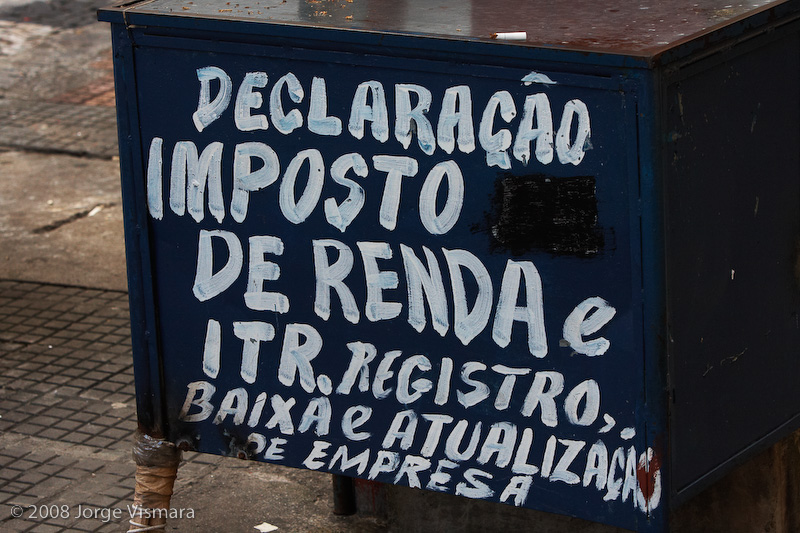 DECLARAÇÃO
IMPOSTO
DE RENDA e
ITR. REGISTRO,.
BAIXA e ATUALIZAÇÃO
DE EMPRESA
© 2008 Jorge Vismara